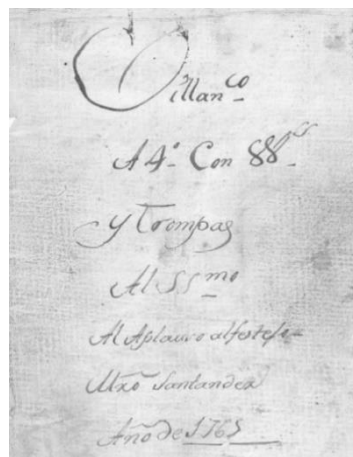 Villan.co
A 4.º Con VV.es
y Trompas
Al SS.mo
Al Aplauso al festejo
Mro Santander
Año de 1765